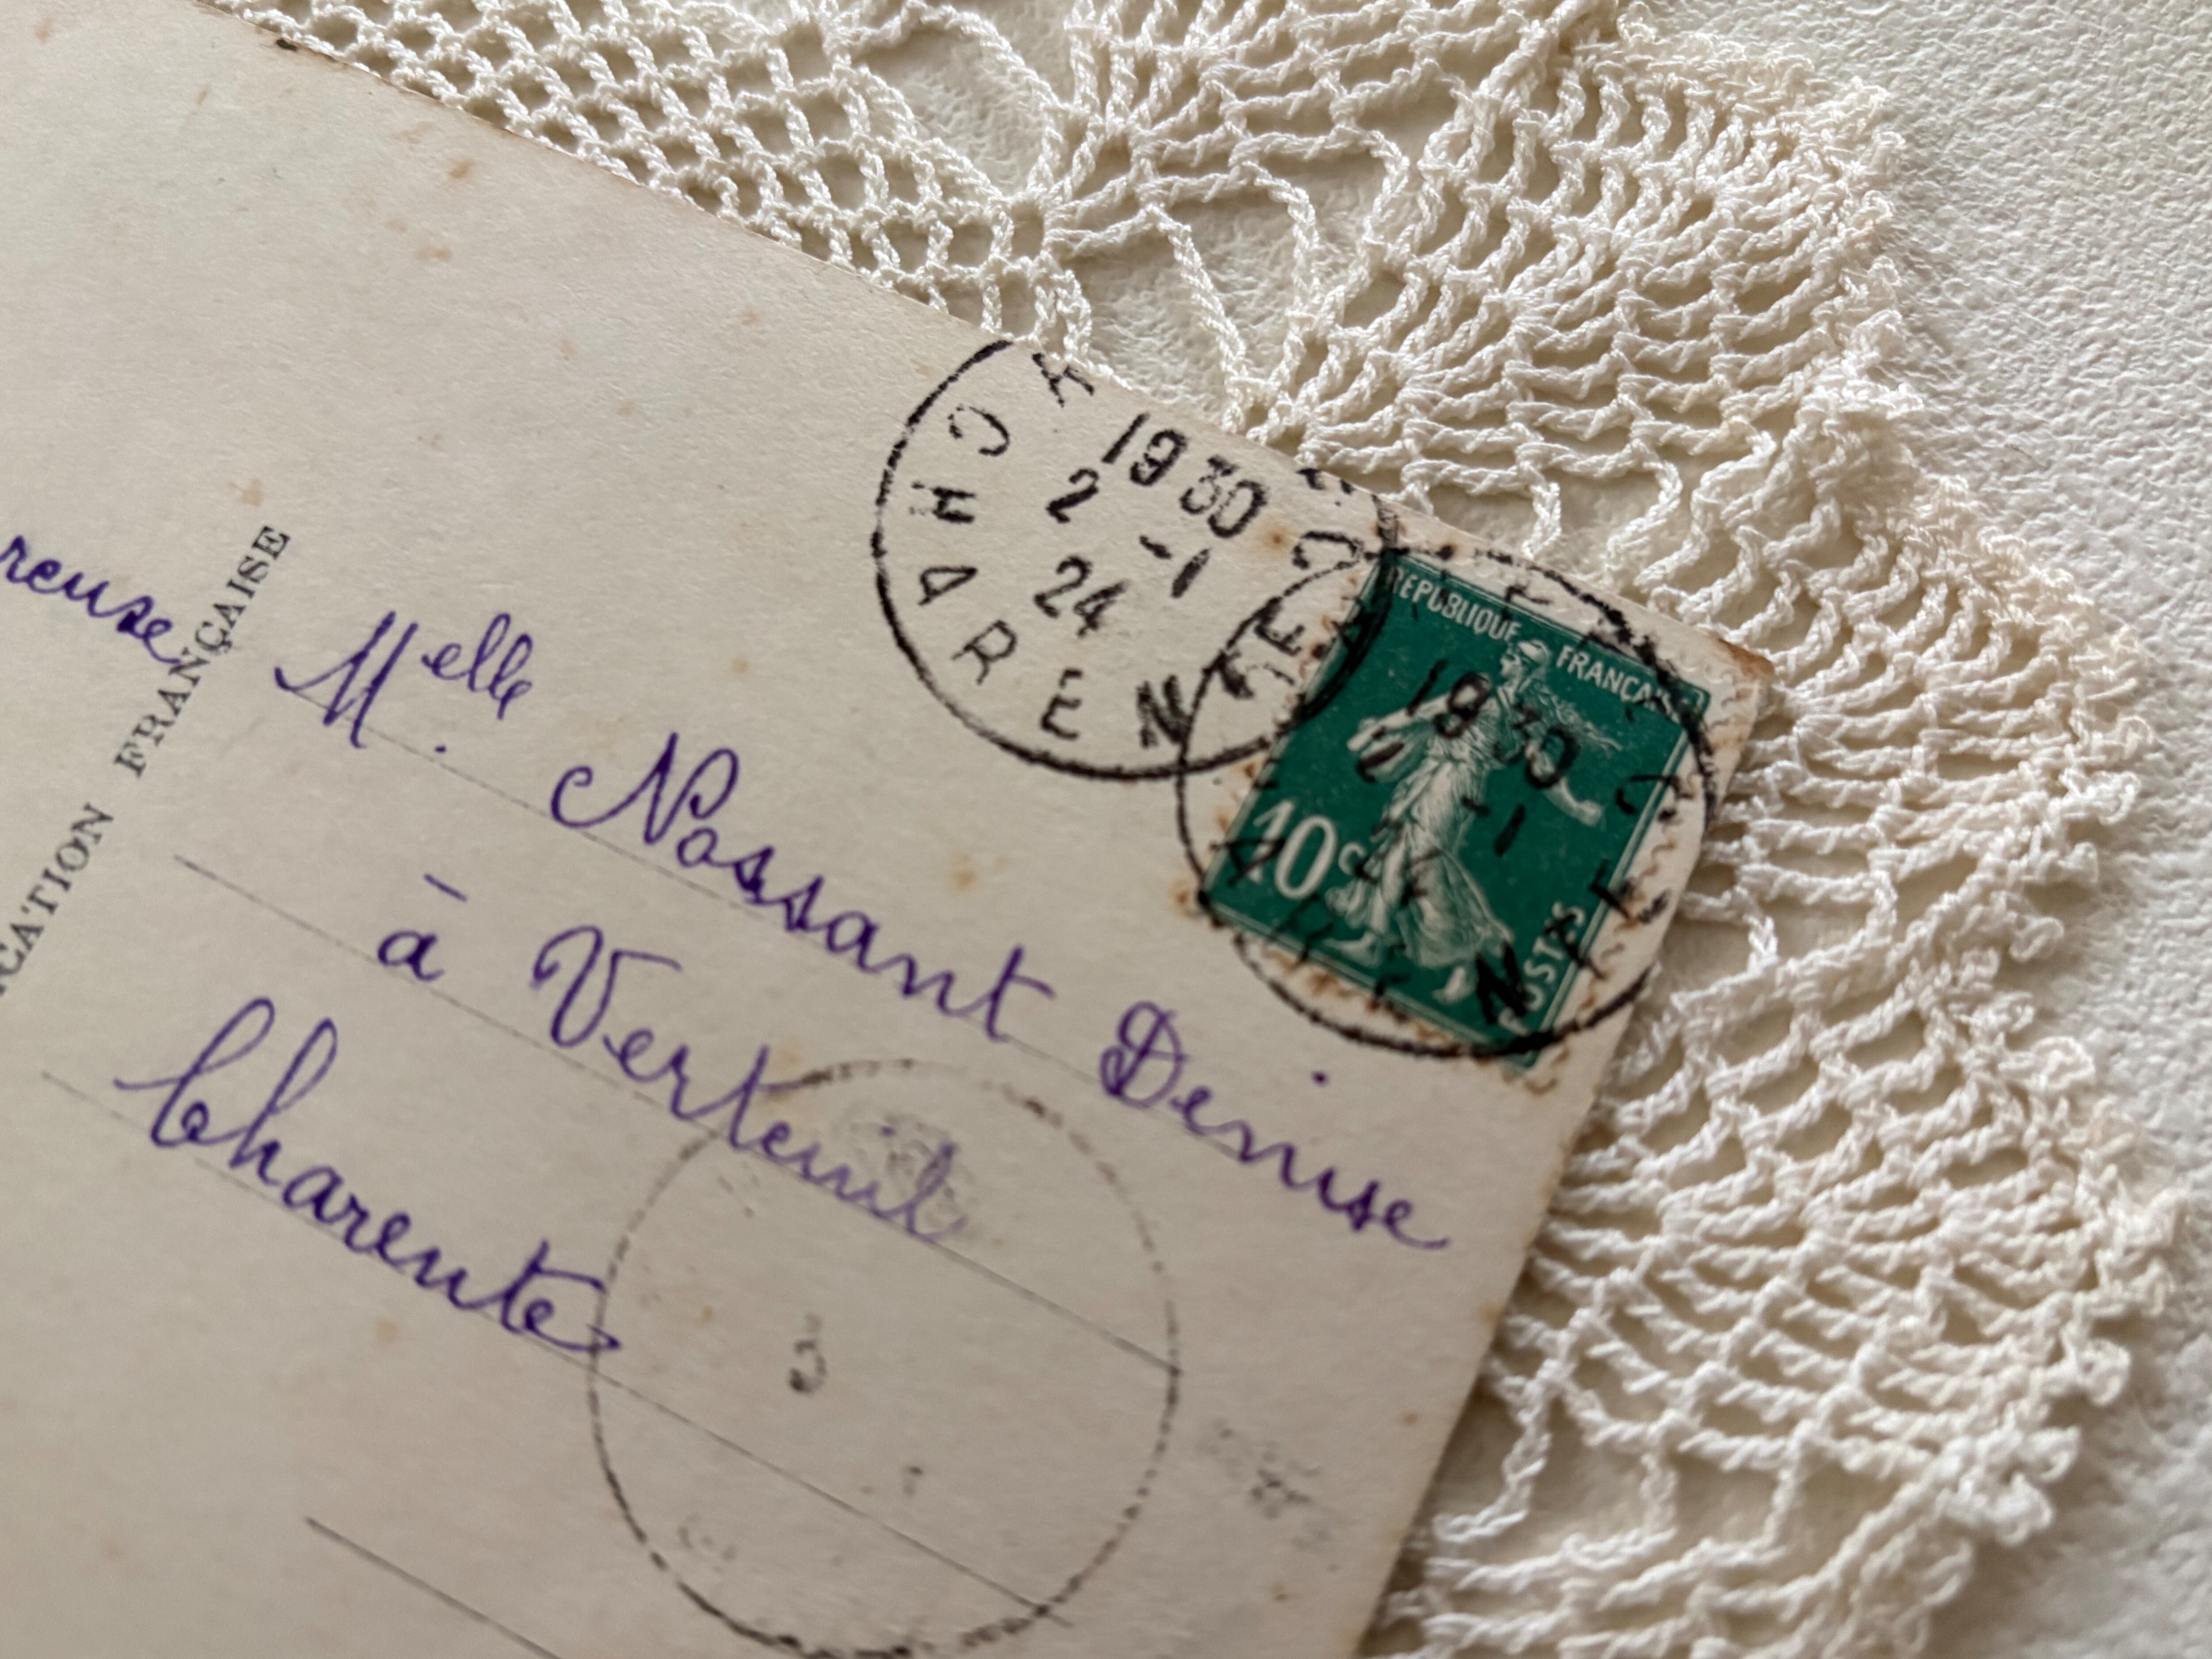 reuse
CATION FRANÇAISE
Melle Nossant Denise
à Verteuil
Charente
19 30
2 -1
24
CHARENTE
REPUBLIQUE FRANÇAISE
19 30
-1
10c
POSTES
3